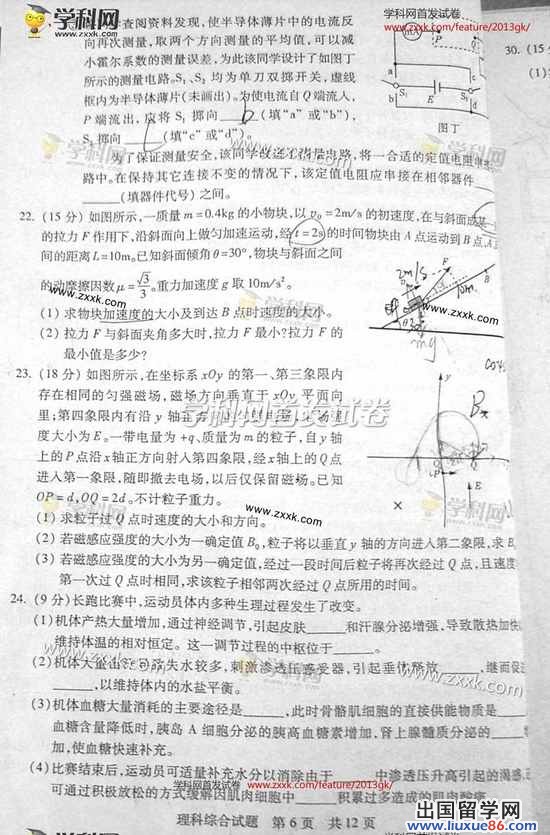 学科网首发试卷
www.zxxk.com/feature/2013gk/
查阅资料发现,使半导体薄片中的电流反
向再次测量,取两个方向测量的平均值,可以减
小霍尔系数的测量误差,为此该同学设计了如图丁
所示的测量电路。S₁、S₂均为单刀双掷开关,虚线
框内为半导体薄片(未画出)。为使电流自Q端流入,
P端流出,应将S₁掷向____(填“a”或“b”),
S₂掷向____(填“c”或“d”)。
为了保证测量安全,该同学改进了测量电路,将一合适的定值电阻串
路中。在保持其它连接不变的情况下,该定值电阻应串接在相邻器件
____(填器件代号)之间。
mA
P
Q
a
c
S₁
E
S₂
b
d
图丁
30. (15
(1)
22. (15分)如图所示,一质量m=0.4kg的小物块,以v₀=2m/s的初速度,在与斜面成某
的拉力F作用下,沿斜面向上做匀加速运动,经t=2s的时间物块由A点运动到B点,A、
间的距离L=10m。已知斜面倾角θ=30°,物块与斜面之间
的动摩擦因数μ=√3/3。重力加速度g取10m/s²。
(1)求物块加速度的大小及到达B点时速度的大小。
(2)拉力F与斜面夹角多大时,拉力F最小?拉力F的
最小值是多少?
2m/s
F
B
10m
mg
23. (18分)如图所示,在坐标系xOy的第一、第三象限内
存在相同的匀强磁场,磁场方向垂直于xOy平面向
里;第四象限内有沿y轴正方向的匀强电场,电场强
度大小为E。一带电量为+q、质量为m的粒子,自y轴
上的P点沿x轴正方向射入第四象限,经x轴上的Q点
进入第一象限,随即撤去电场,以后仅保留磁场。已知
OP=d,OQ=2d。不计粒子重力。
(1)求粒子过Q点时速度的大小和方向。
(2)若磁感应强度的大小为一确定值B₀,粒子将以垂直y轴的方向进入第二象限,求B
(3)若磁感应强度的大小为另一确定值,经过一段时间后粒子将再次经过Q点,且速度
第一次过Q点时相同,求该粒子相邻两次经过Q点所用的时间。
y
B
×
P
E
24. (9分)长跑比赛中,运动员体内多种生理过程发生了改变。
(1)机体产热大量增加,通过神经调节,引起皮肤____和汗腺分泌增强,导致散热加快
维持体温的相对恒定。这一调节过程的中枢位于____。
(2)机体大量出汗可导致失水较多,刺激渗透压感受器,引起垂体释放____,继而促
____,以维持体内的水盐平衡。
(3)机体血糖大量消耗的主要途径是____,此时骨骼肌细胞的直接供能物质是____
血糖含量降低时,胰岛A细胞分泌的胰高血糖素增加,肾上腺髓质分泌的____
加,使血糖快速补充。
(4)比赛结束后,运动员可适量补充水分以消除由于____中渗透压升高引起的渴感
可通过积极放松的方式缓解因肌肉细胞中____积累过多造成的肌肉酸痛
学科网首发试卷 www.zxxk.com/feature/2013gk/
理科综合试题 第6页 共12页
学科网
www.zxxk.com
学科网首发试卷
出国留学网
www.liuxue86.com